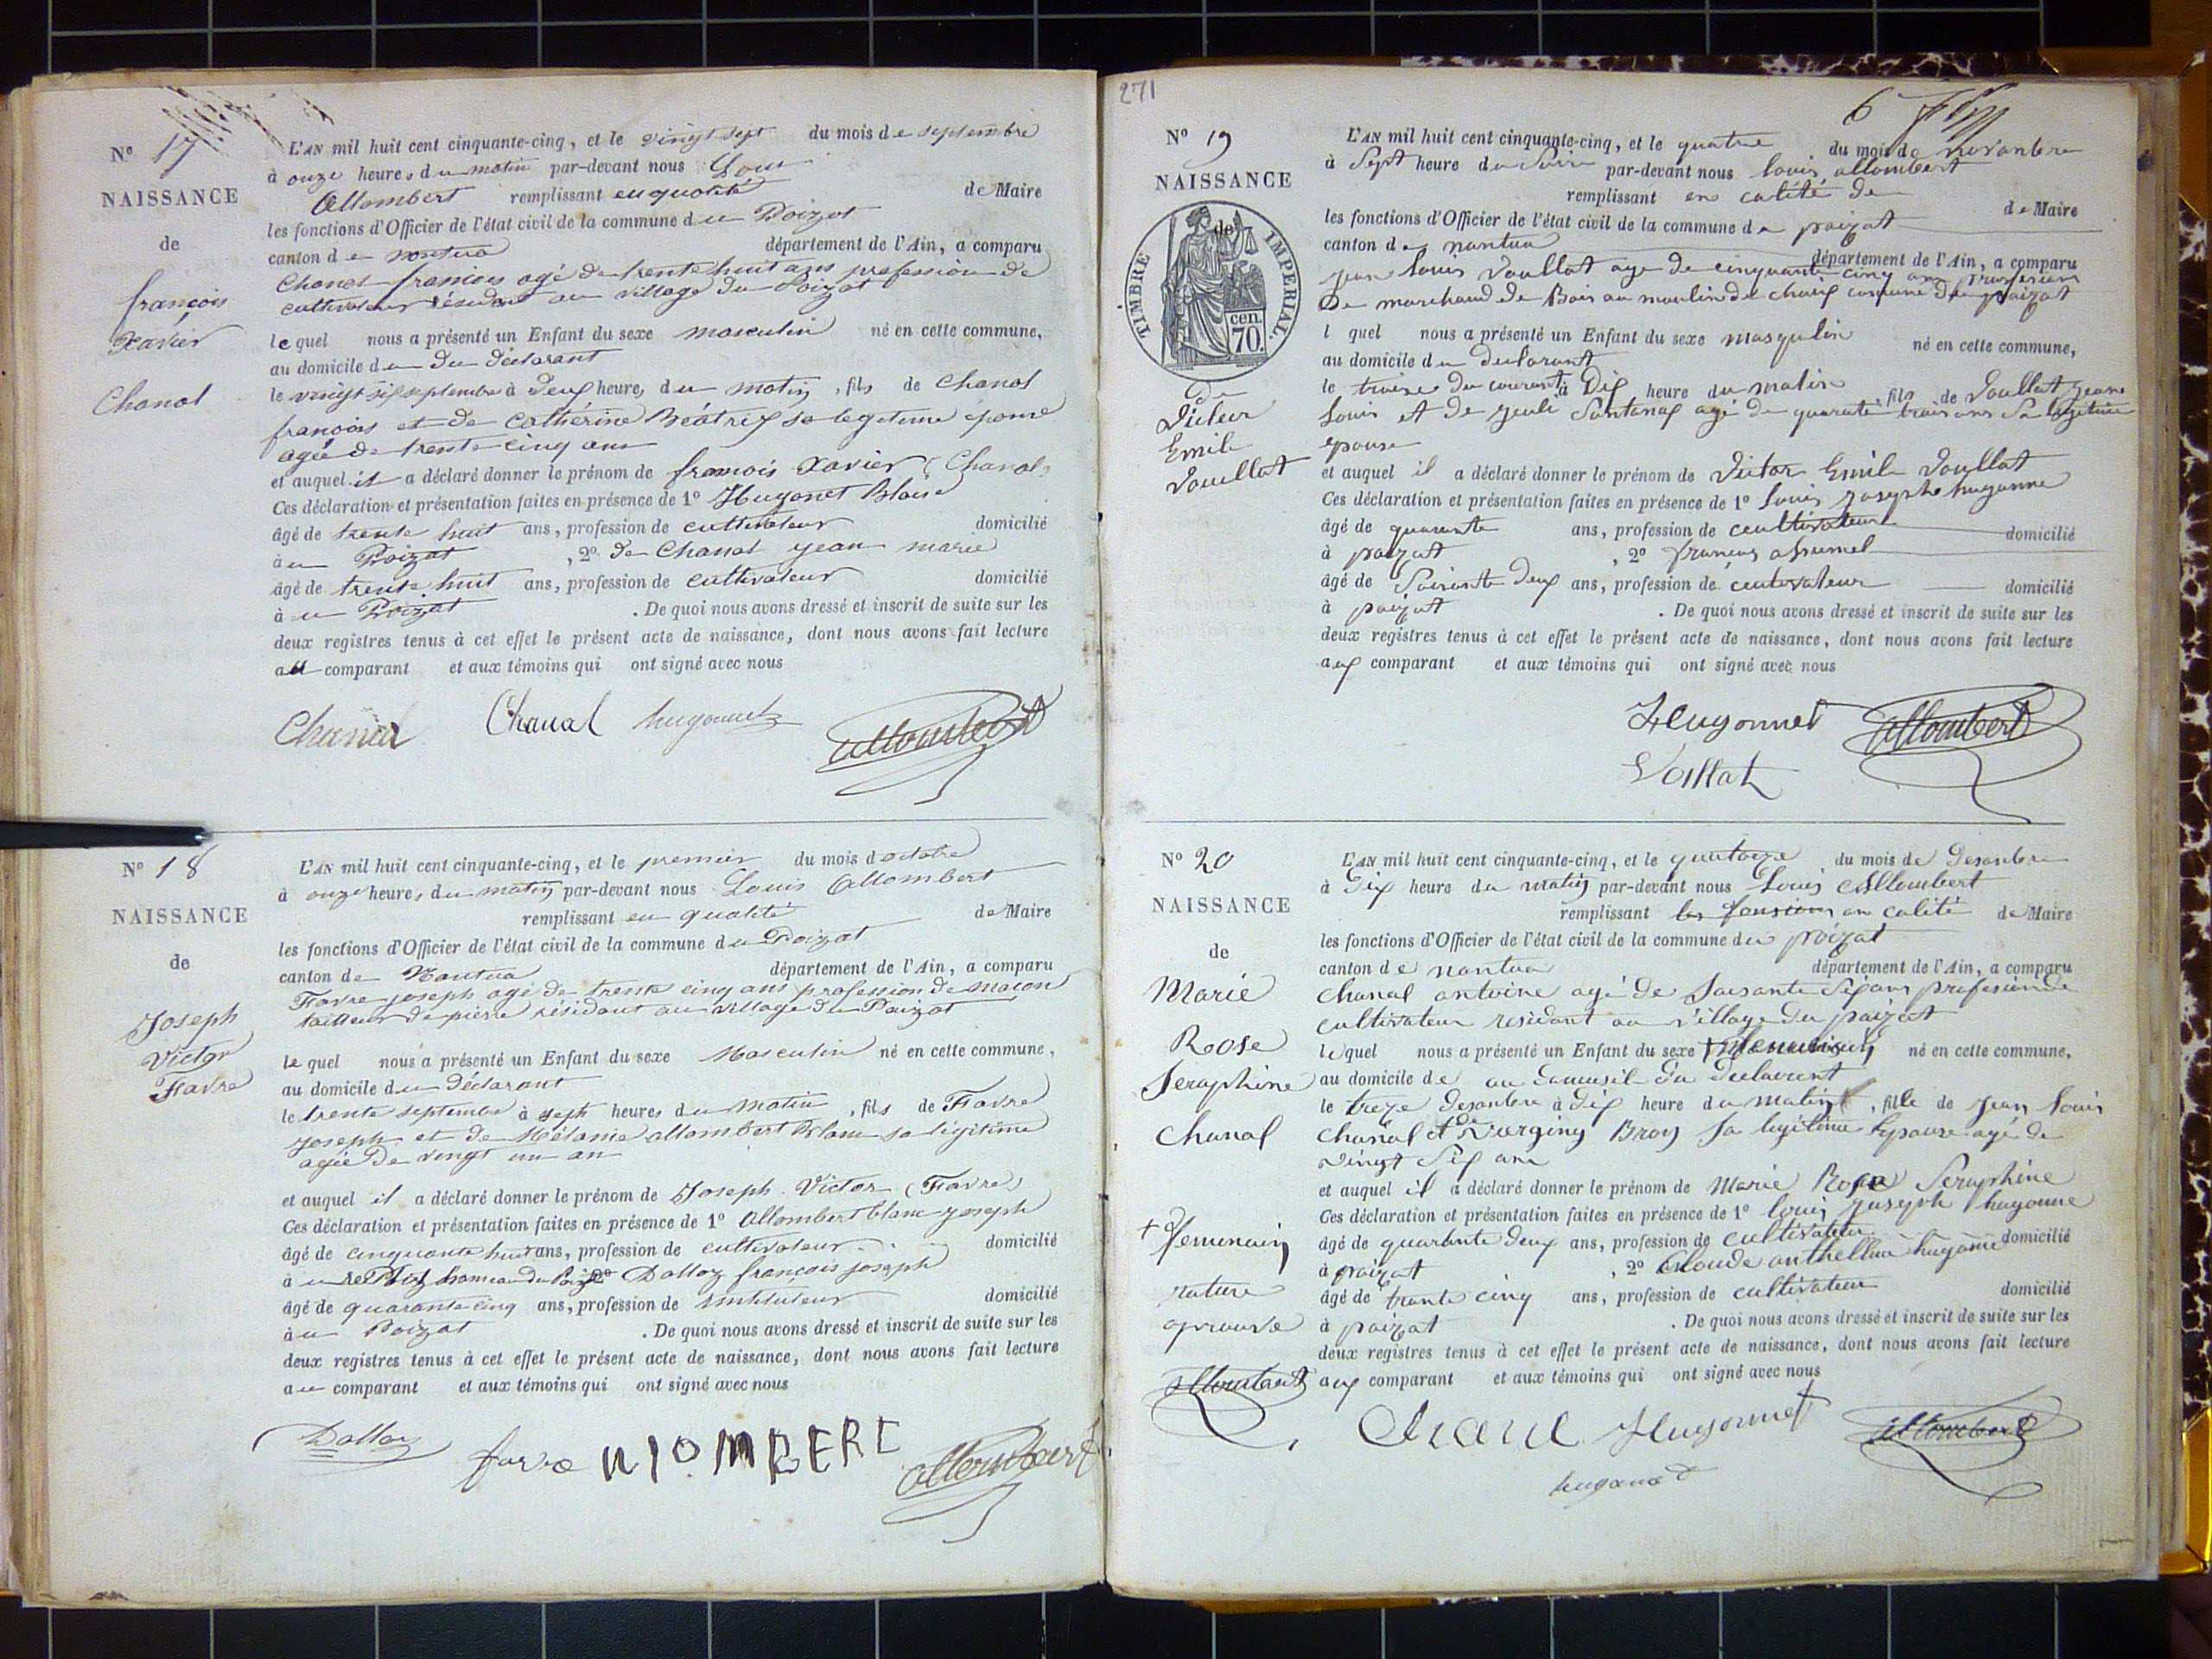 N° 17
NAISSANCE
de
françois
Xavier
Chanal
L'AN mil huit cent cinquante-cinq, et le vingt sept du mois de septembre
à onze heures du matin par-devant nous Loui
Allombert remplissant en qualité de Maire
les fonctions d'Officier de l'état civil de la commune du Poizat
canton de nantua département de l'Ain, a comparu
Chanal francois agé de trente huit ans profession de
cultivateur résidant au village du Poizat
le quel nous a présenté un Enfant du sexe masculin né en cette commune,
au domicile du du déclarant
le vingt six septembre à deux heures du matin, fils de Chanal
françois et de Cathérine Béatrix sa legetime épouse
agée de trente cinq ans
et auquel il a déclaré donner le prénom de francois Xavier (Chanal)
Ces déclaration et présentation faites en présence de 1° Hugonet Blaise
âgé de trente huit ans, profession de cultivateur domicilié
à u Poizat, 2° de Chanal jean marie
âgé de trente huit ans, profession de cultivateur domicilié
à u Poizat. De quoi nous avons dressé et inscrit de suite sur les
deux registres tenus à cet effet le présent acte de naissance, dont nous avons fait lecture
au comparant et aux témoins qui ont signé avec nous
Chanal Chanal hugonnet Allombert
N° 18
NAISSANCE
de
Joseph
Victor
Favre
L'AN mil huit cent cinquante-cinq, et le premier du mois d octobre
à onze heures du matin par-devant nous Louis Allombert
remplissant en qualité de Maire
les fonctions d'Officier de l'état civil de la commune du Poizat
canton de Nantua département de l'Ain, a comparu
Favre joseph agé de trente cinq ans profession de macon
tailleur de pierre résidant au village du Poizat
le quel nous a présenté un Enfant du sexe Masculin né en cette commune,
au domicile du déclarant
le trente septembre à sept heures du matin, fils de Favre
joseph et de Mélanie allombert Blanc sa légitime
agée de vingt un an
et auquel il a déclaré donner le prénom de Joseph Victor (Favre)
Ces déclaration et présentation faites en présence de 1° Allombert blanc joseph
âgé de cinquante huit ans, profession de cultivateur domicilié
à u hameau du Poizat 2° Dalloz françois joseph
âgé de quarante cinq ans, profession de instituteur domicilié
à u Poizat. De quoi nous avons dressé et inscrit de suite sur les
deux registres tenus à cet effet le présent acte de naissance, dont nous avons fait lecture
au comparant et aux témoins qui ont signé avec nous
Dalloz favre Allombert
271
6
N° 19
NAISSANCE
de
TIMBRE IMPERIAL
70 cen.
de
Victeur
Emile
Vouillat
L'AN mil huit cent cinquante-cinq, et le quatre du mois de novanbre
à Sept heure du Soire par-devant nous louis allombert
remplissant en calité de de Maire
les fonctions d'Officier de l'état civil de la commune de poizat
canton de nantua département de l'Ain, a comparu
jean louis Voullat age de cinquante cinq ans
De marchand de Bois au moulin de chaux comune du poizat
l quel nous a présenté un Enfant du sexe masqulin né en cette commune,
au domicile du declarant
le troise du courant à Dix heure du matin, fils de Voullat jeans
louis et de agé de quarate trois ans Sa legitime
epouse
et auquel il a déclaré donner le prénom de Victor Emile Voullat
Ces déclaration et présentation faites en présence de 1° louis josephe hugonne
âgé de quarente ans, profession de ceultivateur domicilié
à poizat, 2° francois assumel
âgé de Soisante deux ans, profession de ceutivateur domicilié
à poizat. De quoi nous avons dressé et inscrit de suite sur les
deux registres tenus à cet effet le présent acte de naissance, dont nous avons fait lecture
aux comparant et aux témoins qui ont signé avec nous
Heugonnet Allombert
Voillat
N° 20
NAISSANCE
de
Marie
Roose
Seraphine
Chanal
+ femenain
rature
aprouve
Allombert
L'AN mil huit cent cinquante-cinq, et le quatorze du mois de Desanbre
à Dix heure du matin par-devant nous Louis Allombert
remplissant les fonsions en calité de Maire
les fonctions d'Officier de l'état civil de la commune du poizat
canton de nantua département de l'Ain, a comparu
Chanal antoine agé de Soisante Six ans profesion de
cultivateur residant au village du poizat
le quel nous a présenté un Enfant du sexe né en cette commune,
au domicile de au Daumisil du declarent
le treze Desanbre à Dix heure du matin, fille de jean louis
Chanal et de Vierginy Broy Sa legitime Epouse agé de
vingt Six ans
et auquel il a déclaré donner le prénom de Marie Rose Seraphine
Ces déclaration et présentation faites en présence de 1° louis juseph hugonne
âgé de quarante deux ans, profession de cultivateur domicilié
à poizat, 2° Claude anthellme hugonne
âgé de trante cinq ans, profession de cultivateur domicilié
à poizat. De quoi nous avons dressé et inscrit de suite sur les
deux registres tenus à cet effet le présent acte de naissance, dont nous avons fait lecture
aux comparant et aux témoins qui ont signé avec nous
Hugonnet Allombert